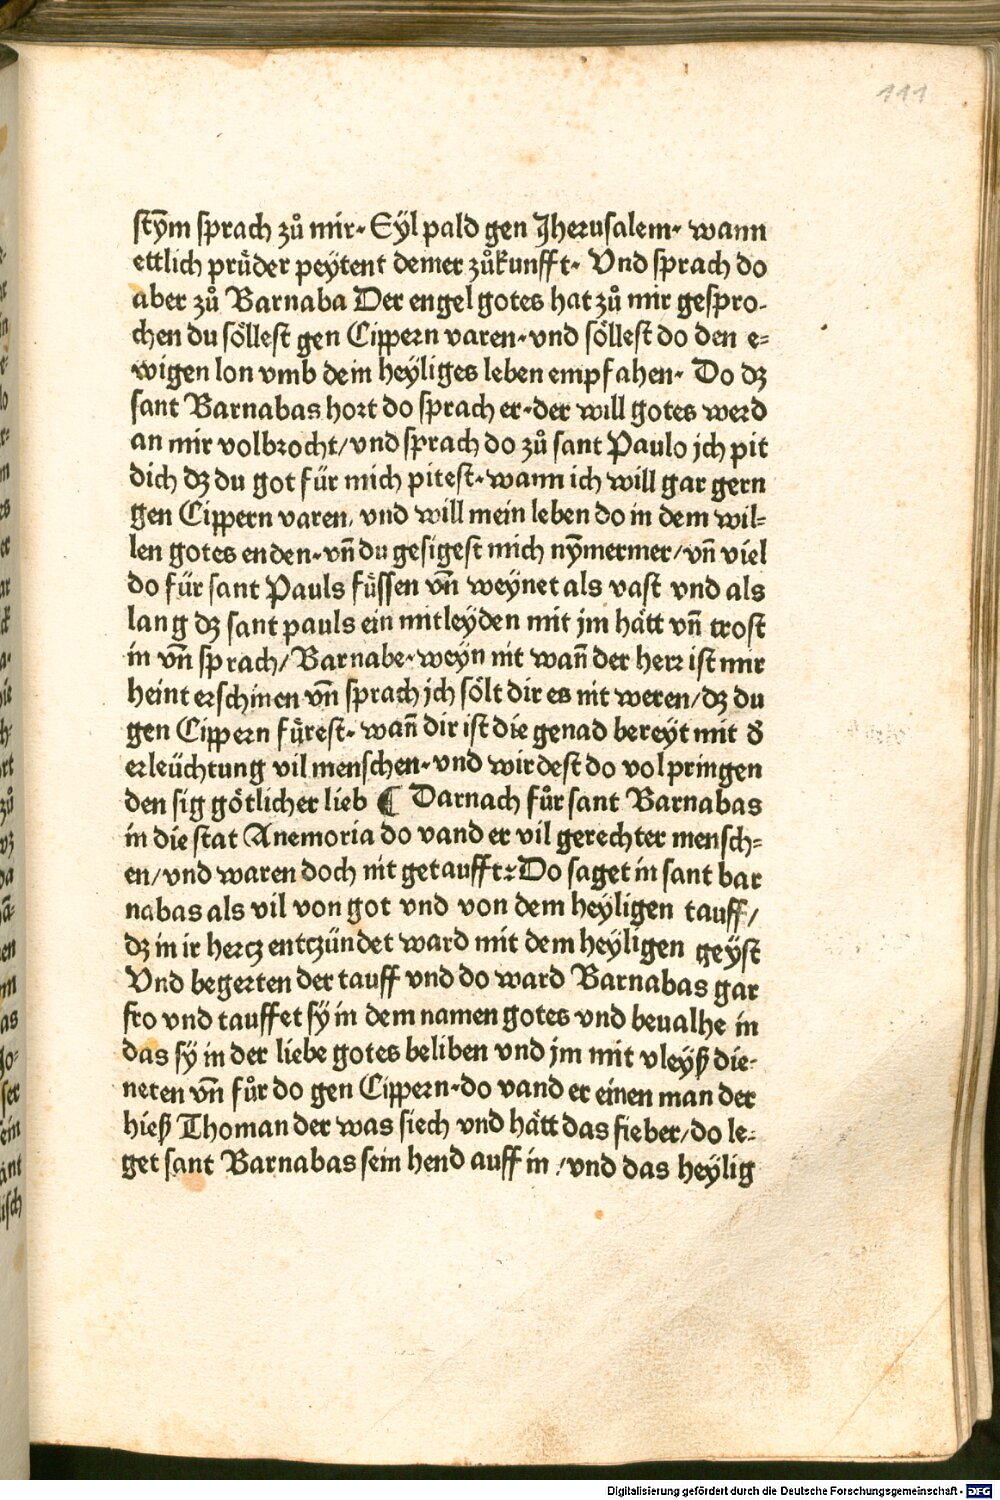 111
stym̄ sprach zů mir· Eyl pald gen Jherusalem· wann
ettlich prüder peytent deiner zůkunfft· Vnd sprach do
aber zů Barnaba Der engel gotes hat zů mir gespro-
chen du söllest gen Cippern varen· vnd söllest do den e=
wigen lon vmb dein heyliges leben empfahen· Do dz
sant Barnabas hort do sprach er· der will gotes werd
an mir volbrocht/ vnd sprach do zů sant Paulo jch pit
dich dz du got für mich pitest· wann ich will gar gern
gen Cippern varen, vnd will mein leben do in dem wil=
len gotes enden· vn̄ du gesigest mich nym̄ermer/ vn̄ viel
do für sant Pauls füssen vn̄ weynet als vast vnd als
lang dz sant pauls ein mitleyden mit jm hätt vn̄ trost
in vn̄ sprach/ Barnabe· weyn nit wan̄ der herr ist mir
heint erschinen vn̄ sprach jch sölt dir es nit weren/ dz du
gen Cippern fürest· wan̄ dir ist die genad bereyt mit ð
erleüchtung vil menschen· vnd wirdest do volpringen
den sig götlicher lieb ¶ Darnach fůr sant Barnabas
in die stat Anemoria do vand er vil gerechter mensch=
en/ vnd waren doch nit getaufft: Do saget in sant bar
nabas als vil von got vnd von dem heyligen tauff/
dz in ir hercz entczündet ward mit dem heyligen geyst
Vnd begerten der tauff vnd do ward Barnabas gar
fro vnd tauffet sy in dem namen gotes vnd beualhe in
das sy in der liebe gotes beliben vnd jm mit vleyß die-
neten vn̄ fůr do gen Cippern· do vand er einen man der
hieß Thoman der was siech vnd hätt das fieber/ do le-
get sant Barnabas sein hend auff in / vnd das heylig
Digitalisierung gefördert durch die Deutsche Forschungsgemeinschaft - DFG